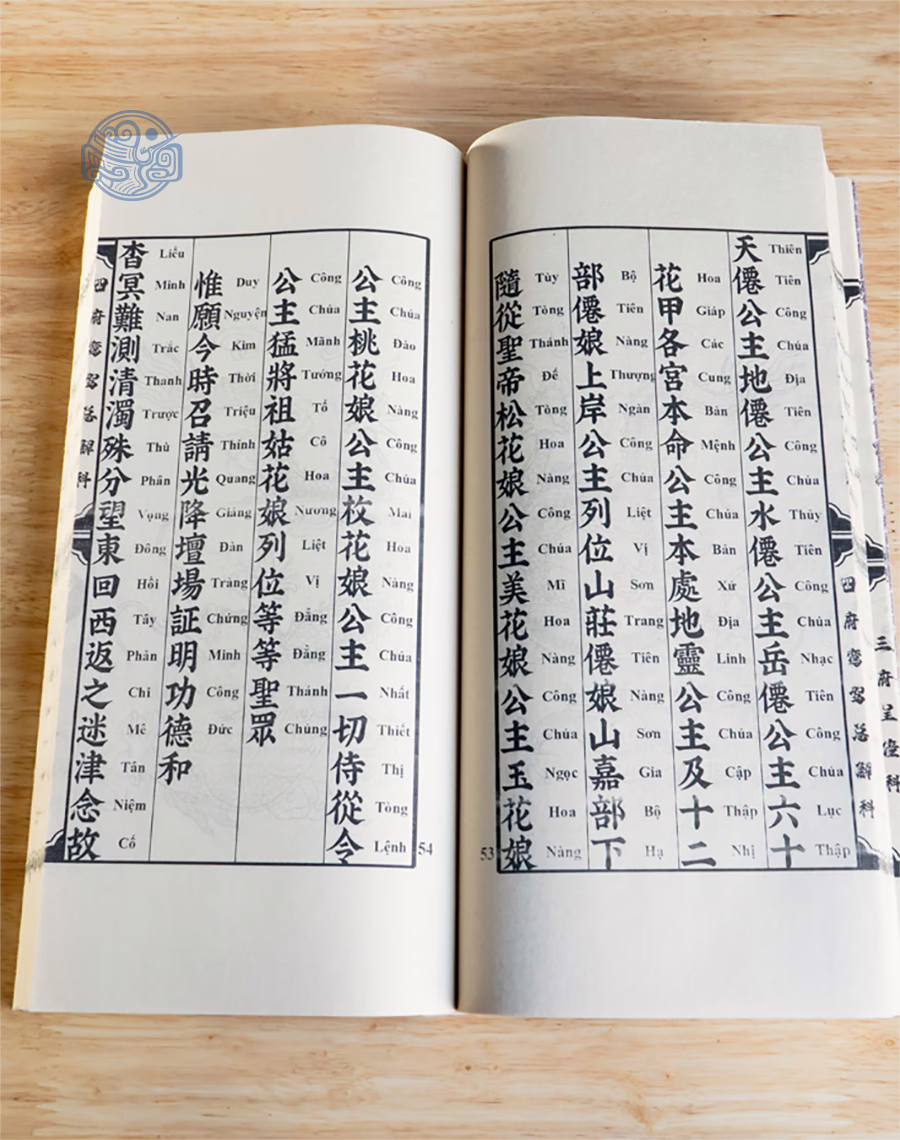 天僊公主地僊公主水僊公主岳僊公主六十
Thiên Tiên Công Chúa Địa Tiên Công Chúa Thủy Tiên Công Chúa Nhạc Tiên Công Chúa Lục Thập
花甲各宮本命公主本處地靈公主及十二
Hoa Giáp Các Cung Bản Mệnh Công Chúa Bản Xứ Địa Linh Công Chúa Cập Thập Nhị
部僊娘上岸公主列位山莊僊娘山嘉部下
Bộ Tiên Nàng Thượng Ngàn Công Chúa Liệt Vị Sơn Trang Tiên Nàng Sơn Gia Bộ Hạ
隨從聖帝松花娘公主美花娘公主玉花娘
Tùy Tòng Thánh Đế Tòng Hoa Nàng Công Chúa Mĩ Hoa Nàng Công Chúa Ngọc Hoa Nàng
53
公主桃花娘公主枚花娘公主一切侍從令
Công Chúa Đào Hoa Nàng Công Chúa Mai Hoa Nàng Công Chúa Nhất Thiết Thị Tòng Lệnh
公主猛將祖姑花娘列位等等聖眾
Công Chúa Mãnh Tướng Tổ Cô Hoa Nương Liệt Vị Đẳng Đẳng Thánh Chúng
惟願今時召請光降壇場証明功德和
Duy Nguyện Kim Thời Triệu Thỉnh Quang Giáng Đàn Tràng Chứng Minh Công Đức
杳冥難測清濁殊分望東回西返之迷津念故
Liểu Minh Nan Trắc Thanh Trược Thù Phân Vọng Đông Hồi Tây Phản Chi Mê Tân Niệm Cố
54